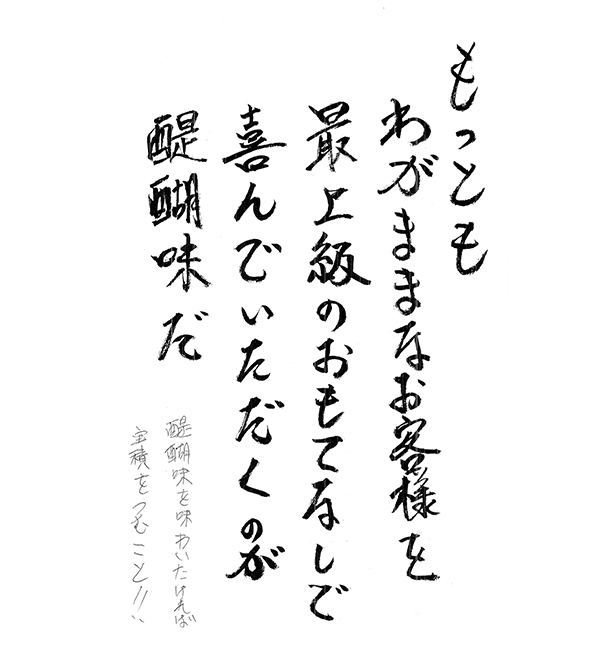 もっとも
わがままなお客様を
最上級のおもてなしで
喜んでいただくのが
醍醐味だ
醍醐味を味わいたければ
宝積をつむこと!!